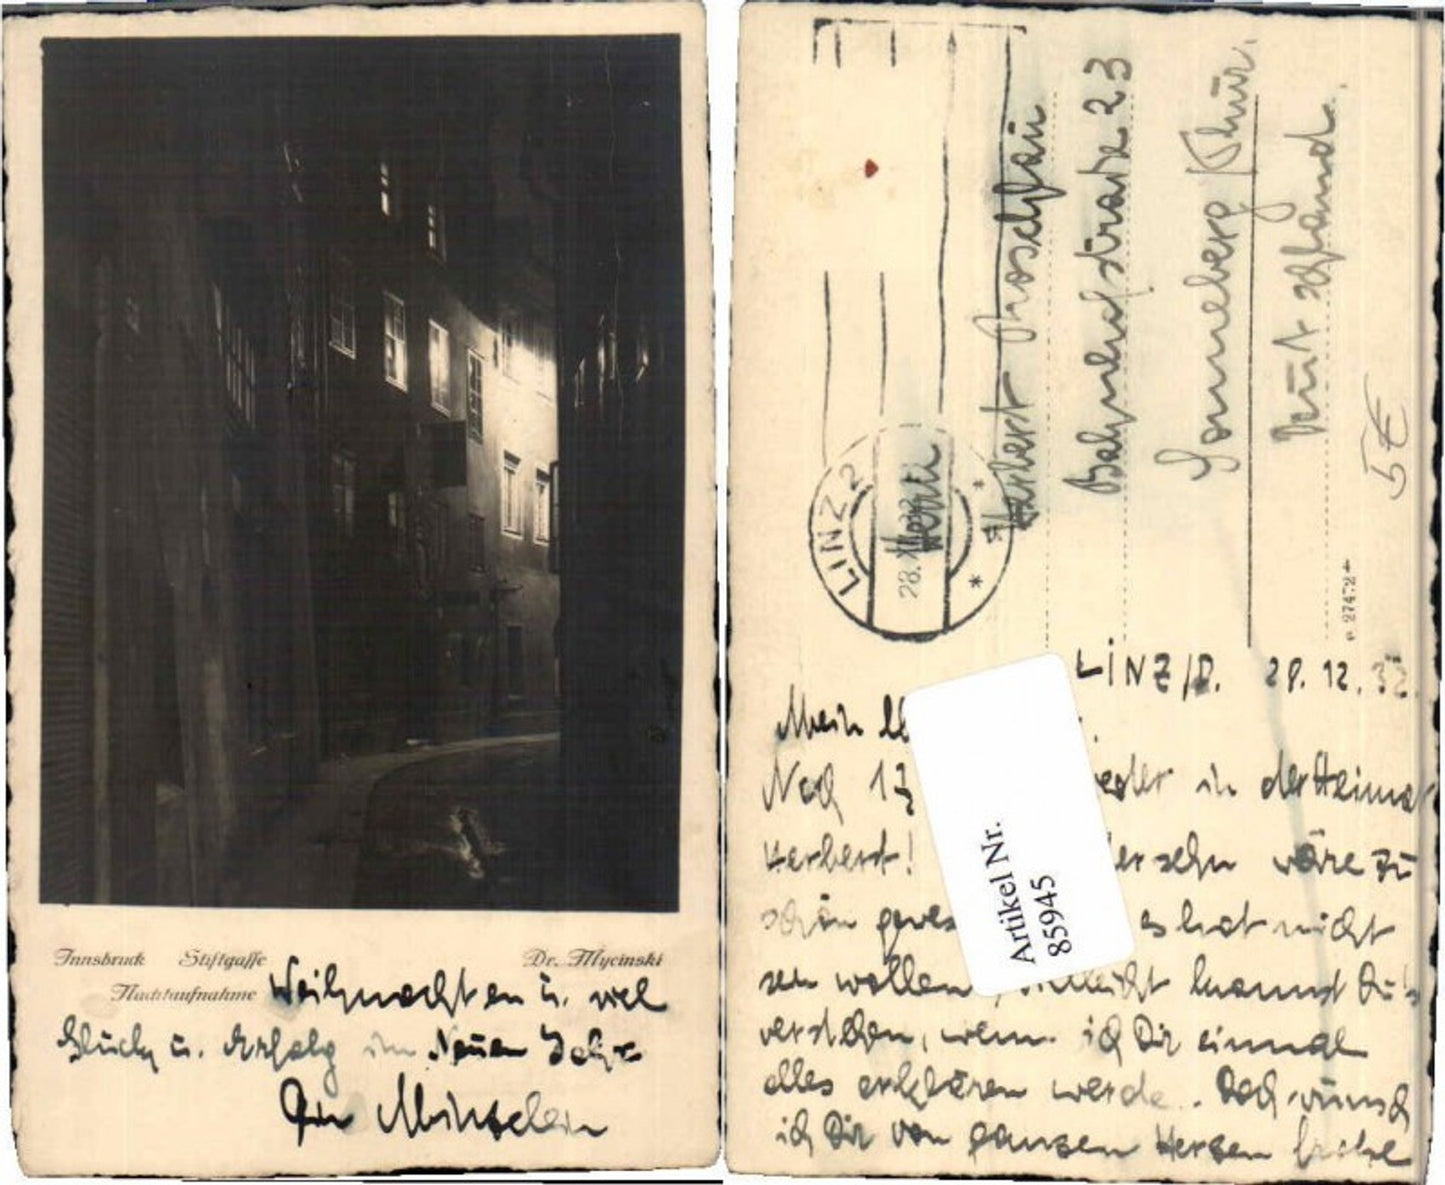 Innsbruck Stiftgasse Dr. Mycinski
Nachtaufnahme
Weihnachten u. viel
Glück u. Erfolg im Neuen Jahre
Dein
LINZ 2
28.
Herbert
Bahnhofstraße 23
Sonneberg Thür.
Deutschland.
5€
27472
LINZ/D. 28.12.32.
Mein
Noch in der Heimat
Herbert! wäre zu
schön es hat nicht
sein wollen, vielleicht kannst Du's
verstehen, wenn ich Dir einmal
alles erklären werde. Doch wünsch
ich Dir von ganzem Herzen frohe
Artikel Nr.
85945